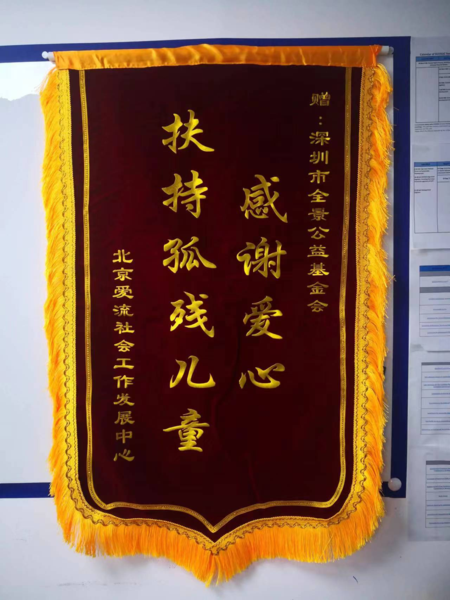 赠：深圳市全景公益基金会
感谢爱心
扶持孤残儿童
北京爱流社会工作发展中心